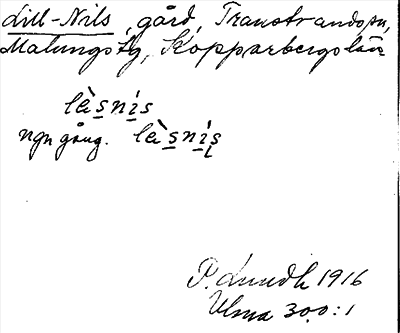 Lill-Nils, gård, Transtrands sn,
Malungs tg, Kopparbergs län
lès̲ní̲s
ngn gång. lès̲ní̲s̲
P. Lundh 1916
Ulma 300:1